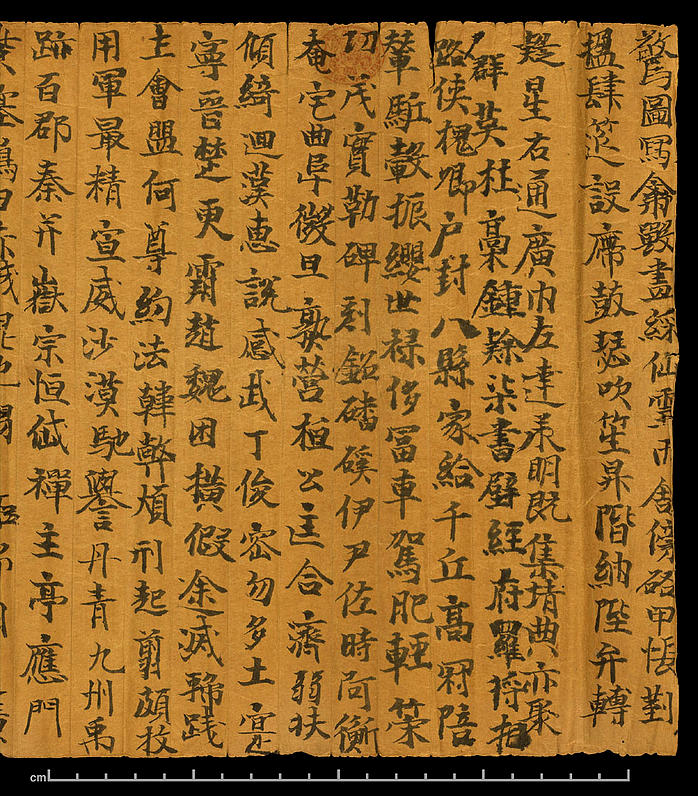 驚圖寫禽獸畫綵仙霊丙舍傍啓甲帳對
楹肆筵設席鼓瑟吹笙昇階納陛弁轉
疑星右通廣内左達承明既集墳典亦聚
群英杜藁鍾隸柒書壁經府羅將相
路俠槐卿戶封八縣家給千丘高冠陪
輦駈轂振纓世禄侈冨車駕肥輕策
功茂實勒碑刻銘磻磎伊尹佐時阿衡
奄宅曲阜微旦孰營桓公匡合濟弱扶
傾綺迴漢惠說感武丁俊密勿多士寔
寧晉楚更霸趙魏困横假途滅虢踐
土會盟何尊約法韓弊煩刑起翦頗牧
用軍最精宣威沙漠馳譽丹青九州禹
跡百郡秦并嶽宗恒岱禪主亭應門
塞鷄田赤城昆池碣
cm